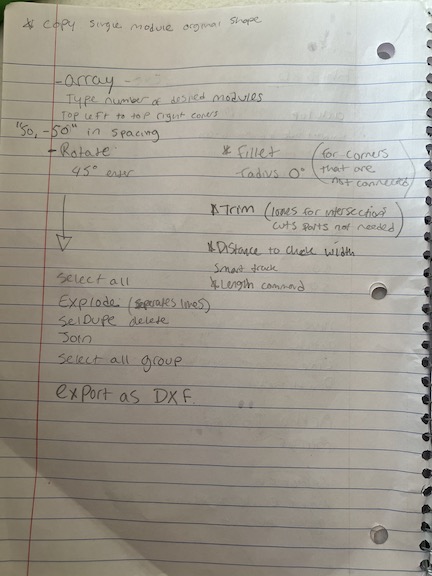 * copy single module original shape
- array
Type number of desired modules
Top left to top right corners
"50, -50" in spacing
- Rotate
45° enter
* Fillet
radius 0°
(for corners
that are
not connected)
* Trim (lones for intersections
cuts parts not needed)
* Distance to check width
Smart track
* Length command
Select all
Explode (separates lines)
SelDupe delete
Join
Select all group
export as DXF